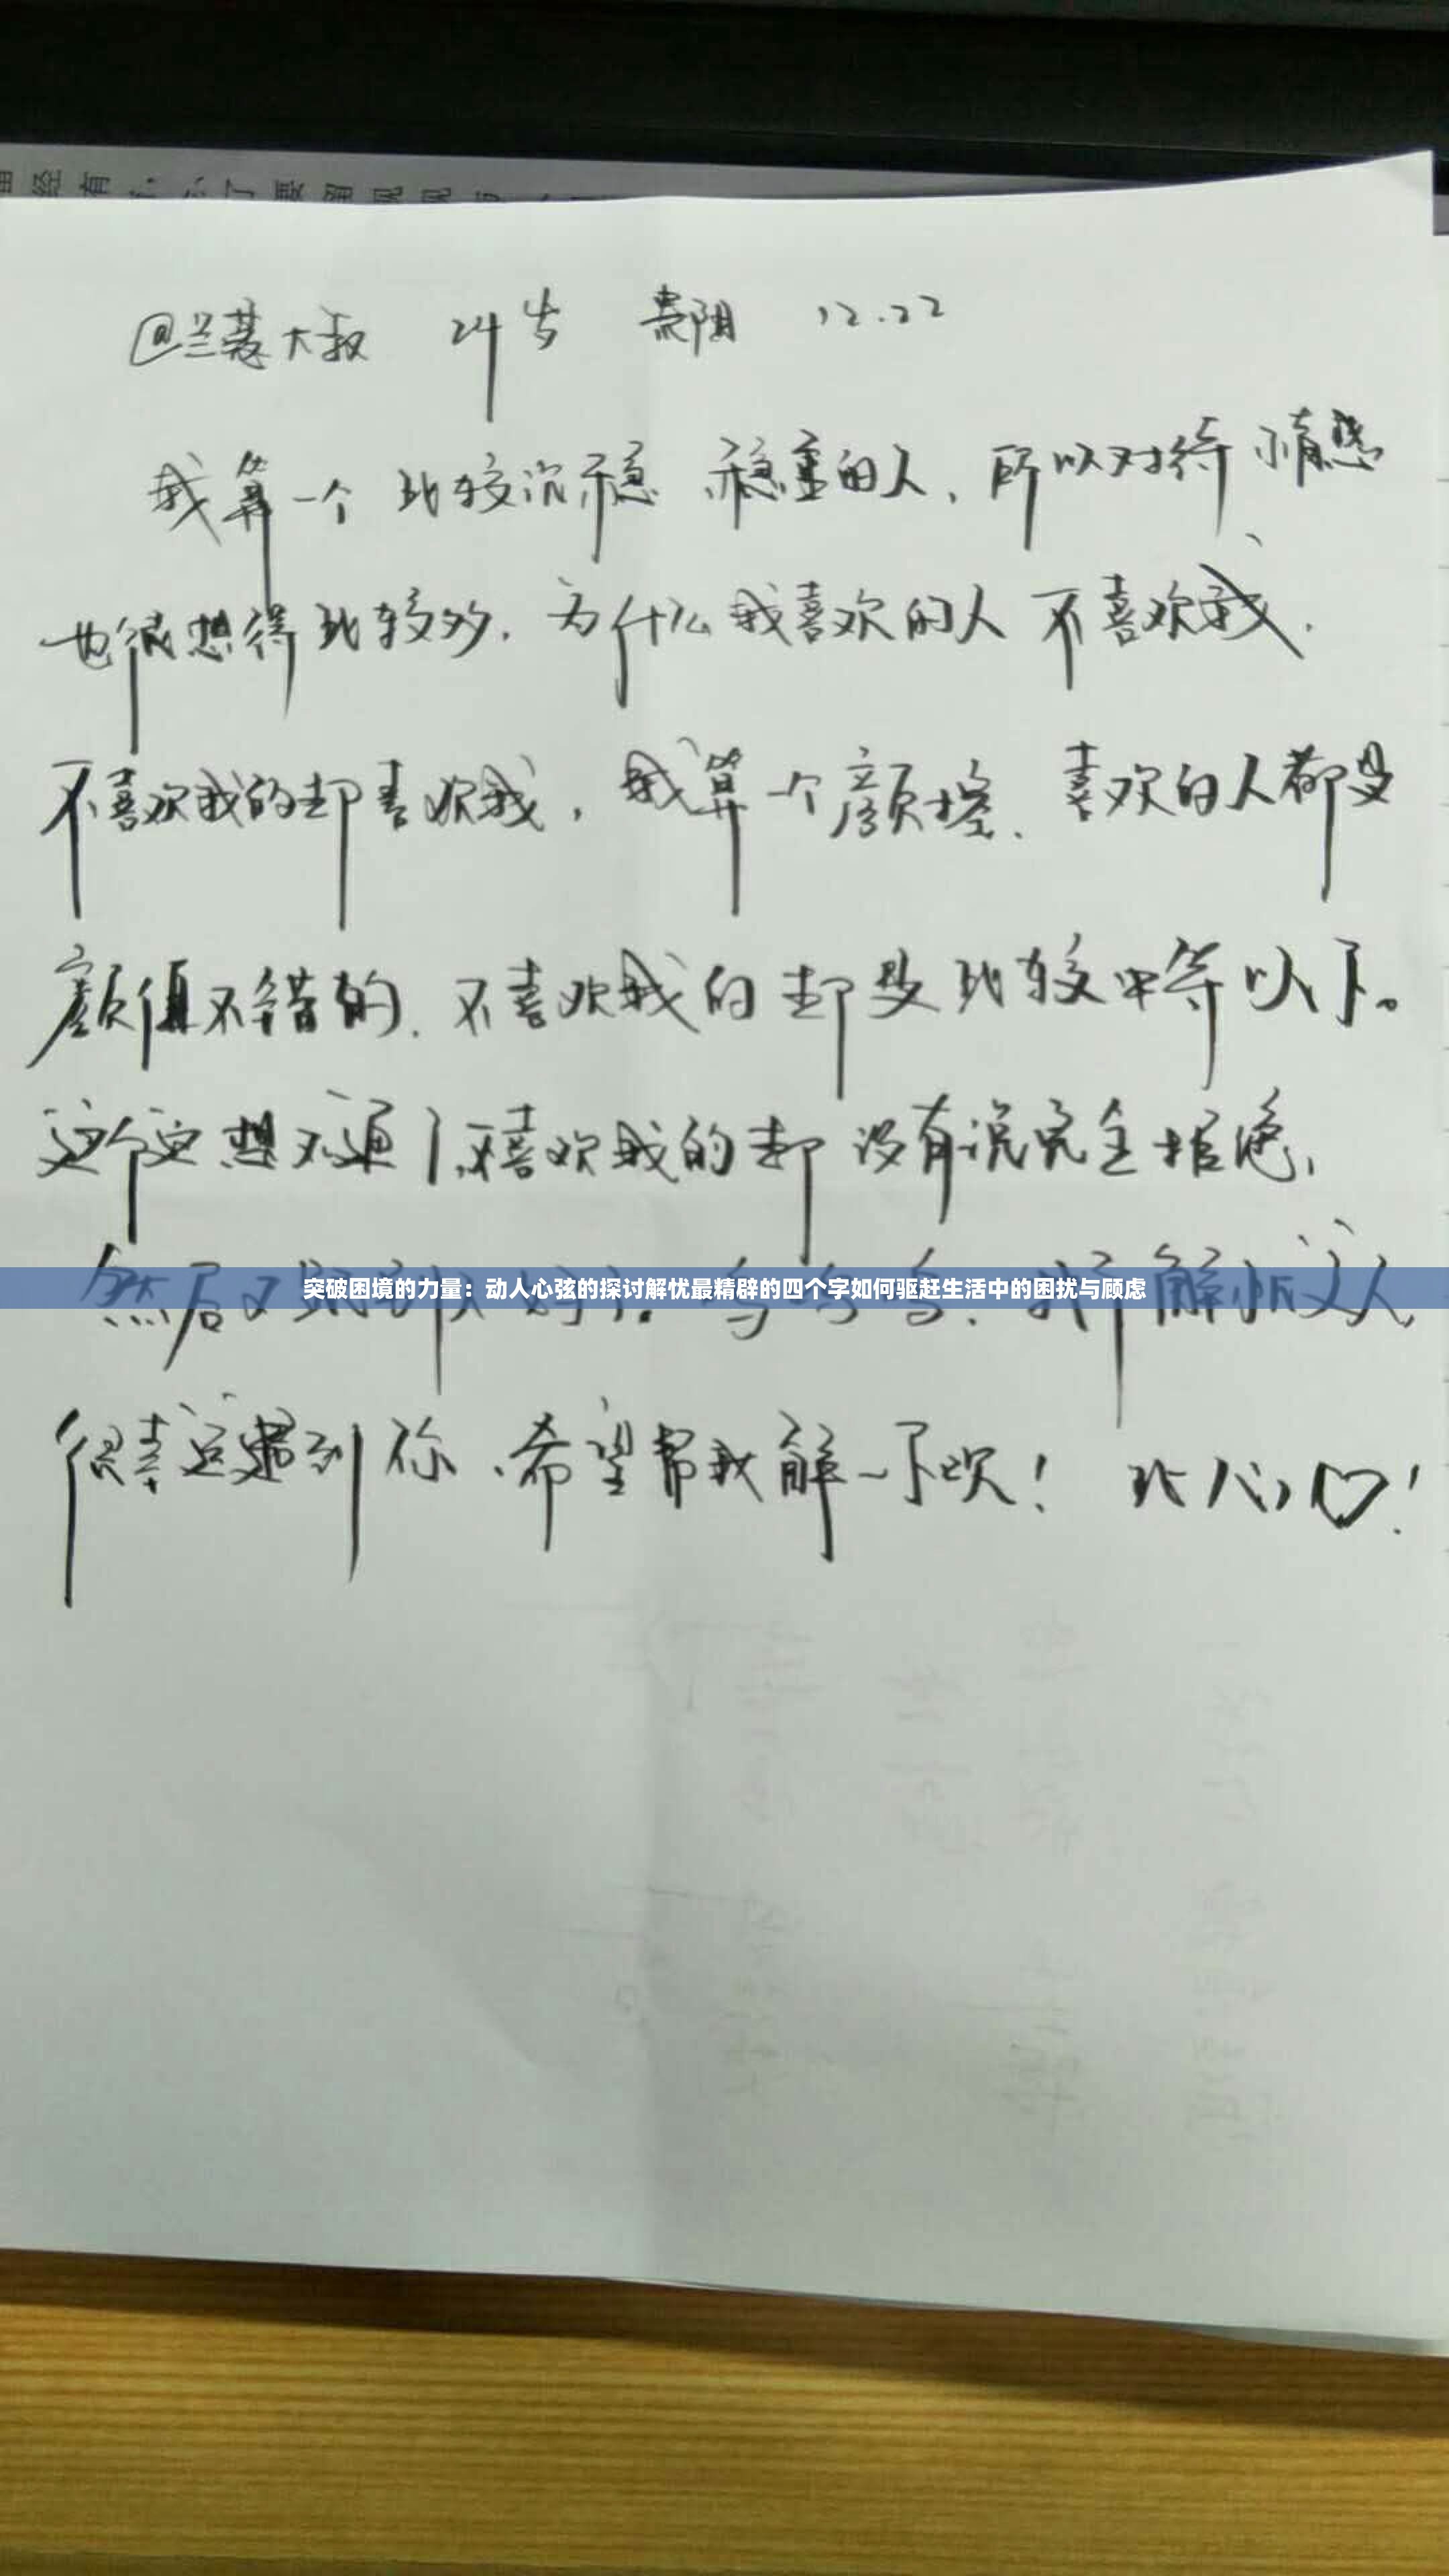 经有 了要留观
@兰蔻大叔 24岁 贵阳 12.22
我算一个比较沉稳 稳重的人，所以对待情感
也很想得比较多，为什么我喜欢的人不喜欢我，
不喜欢我的却喜欢我，我算一个颜控、喜欢的人都是
颜值不错的，不喜欢我的却是比较中等以下。
这个也想不通了，不喜欢我的却没有说完全拒绝，
然后又 解 人
突破困境的力量：动人心弦的探讨解忧最精辟的四个字如何驱赶生活中的困扰与顾虑
很幸运遇到你、希望帮我解一下哎！ 比心♡！